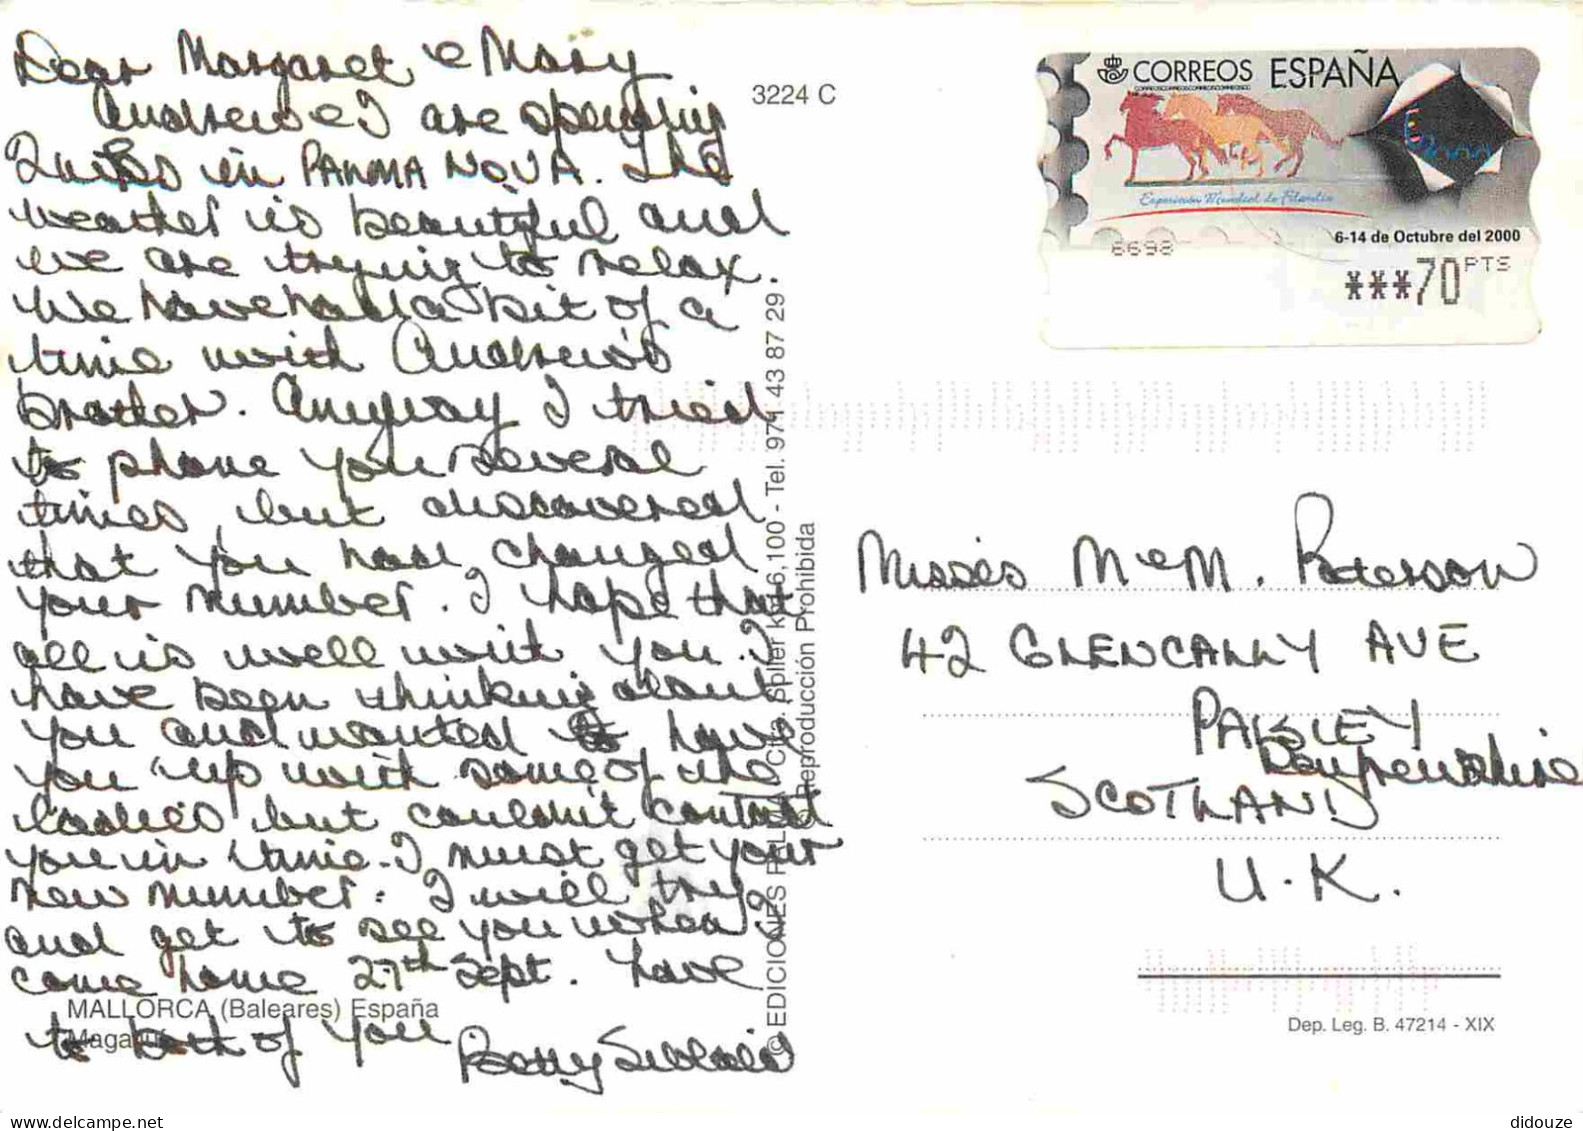 Dear Margaret & Mary
Andrew & I are spending
2 wks in PALMA NOVA. The
weather is beautiful and
we are trying to relax.
We have had a bit of a
time with Andrew's
brother. Anyway I tried
to phone you several
times, but discovered
that you had changed
your number. I hope that
all is well with you. I
have been thinking about
you and wanted to have
you up with some of the
ladies but couldn't contact
you in time. I must get your
new number. I will try
and get to see you when I
come home 27th Sept. Love
to both of you
Betty
MALLORCA (Baleares) España
3224 C
Reproducción Prohibida
CORREOS ESPAÑA
Exposición Mundial de Filatelia
6-14 de Octubre del 2000
6698
***70 PTS
Misses M & M. Paterson
42 GLENCALLY AVE
PAISLEY
Renfrewshire
SCOTLAND
U.K.
Dep. Leg. B. 47214 - XIX
didouze